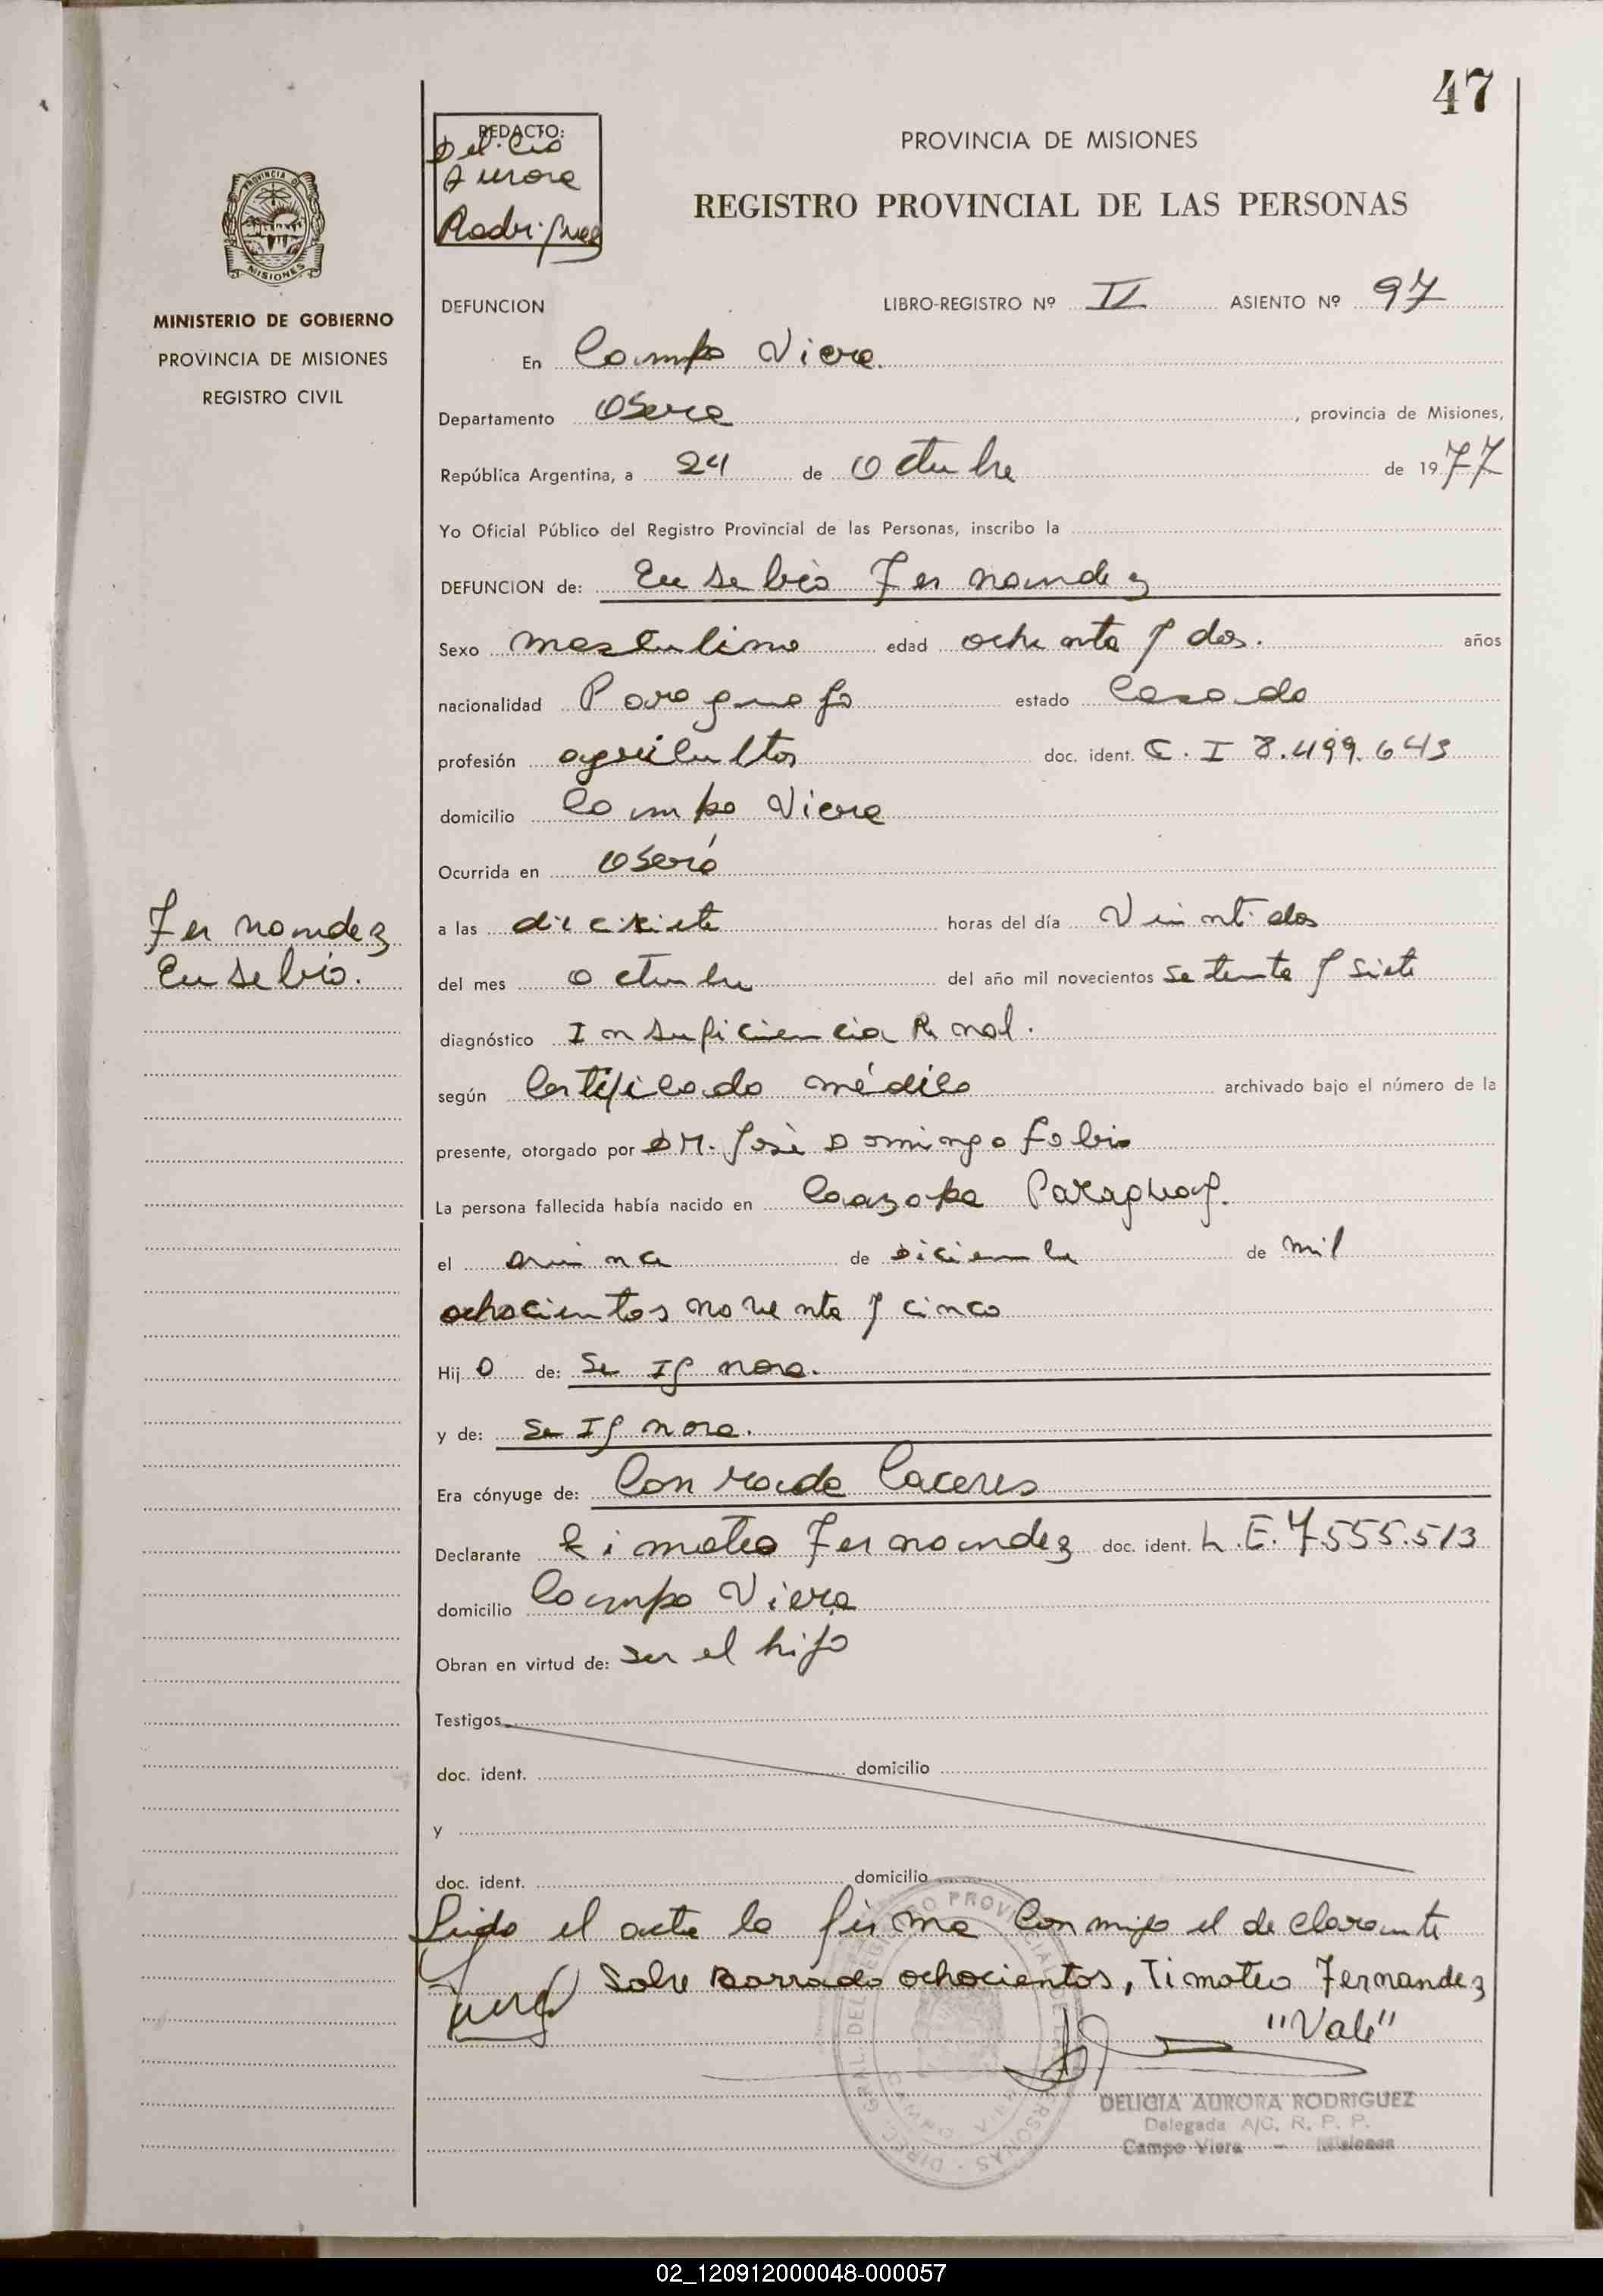 47
REDACTO:
Delicia
Aurora
Rodriguez
PROVINCIA DE MISIONES
REGISTRO PROVINCIAL DE LAS PERSONAS
PROVINCIA DE MISIONES
MINISTERIO DE GOBIERNO
PROVINCIA DE MISIONES
REGISTRO CIVIL
DEFUNCION LIBRO-REGISTRO Nº II ASIENTO Nº 97
En Campo Viera
Departamento Oberá, provincia de Misiones,
República Argentina, a 24 de Octubre de 1977
Yo Oficial Público del Registro Provincial de las Personas, inscribo la
DEFUNCION de: Eusebio Fernandez
Sexo masculino edad ochenta y dos. años
nacionalidad Paraguayo estado Casado
profesión agricultor doc. ident. C.I 8.499.643
domicilio Campo Viera
Ocurrida en Oberá
Fernandez
Eusebio.
a las diecisiete horas del día Veintidos
del mes octubre del año mil novecientos setenta y siete
diagnóstico Insuficiencia Renal.
según Certificado médico archivado bajo el número de la
presente, otorgado por DR. José Domingo Fabio
La persona fallecida había nacido en Caazapa Paraguay.
el quince de Diciembre de mil
ochocientos noventa y cinco
Hijo de: Se Ignora.
y de: Se Ignora.
Era cónyuge de: Conrada Caceres
Declarante Timoteo Fernandez doc. ident. L.E. 7.555.513
domicilio Campo Viera
Obran en virtud de: ser el hijo
Testigos
doc. ident. domicilio
y
doc. ident. domicilio
Leido el acta la firma conmigo el declarante
Sobre Borrado ochocientos, Timoteo Fernandez
"Vale"
DELICIA AURORA RODRIGUEZ
Delegada A/C. R. P. P.
Campo Viera - Misiones
02_120912000048-000057